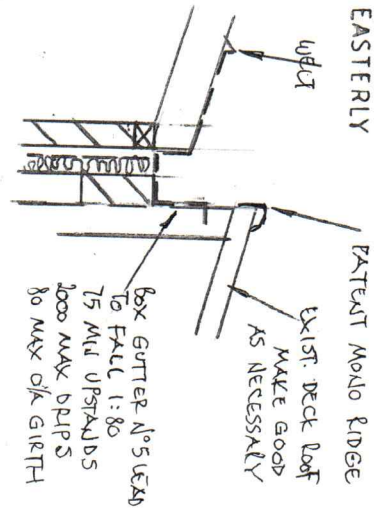 EASTERLY
WELT
PATENT MONO RIDGE
EXIST. DECK ROOF
MAKE GOOD
AS NECESSARY
BOX GUTTER Nº5 LEAD
TO FALL 1:80
75 MIN UPSTANDS
2000 MAX DRIPS
80 MAX O/A GIRTH